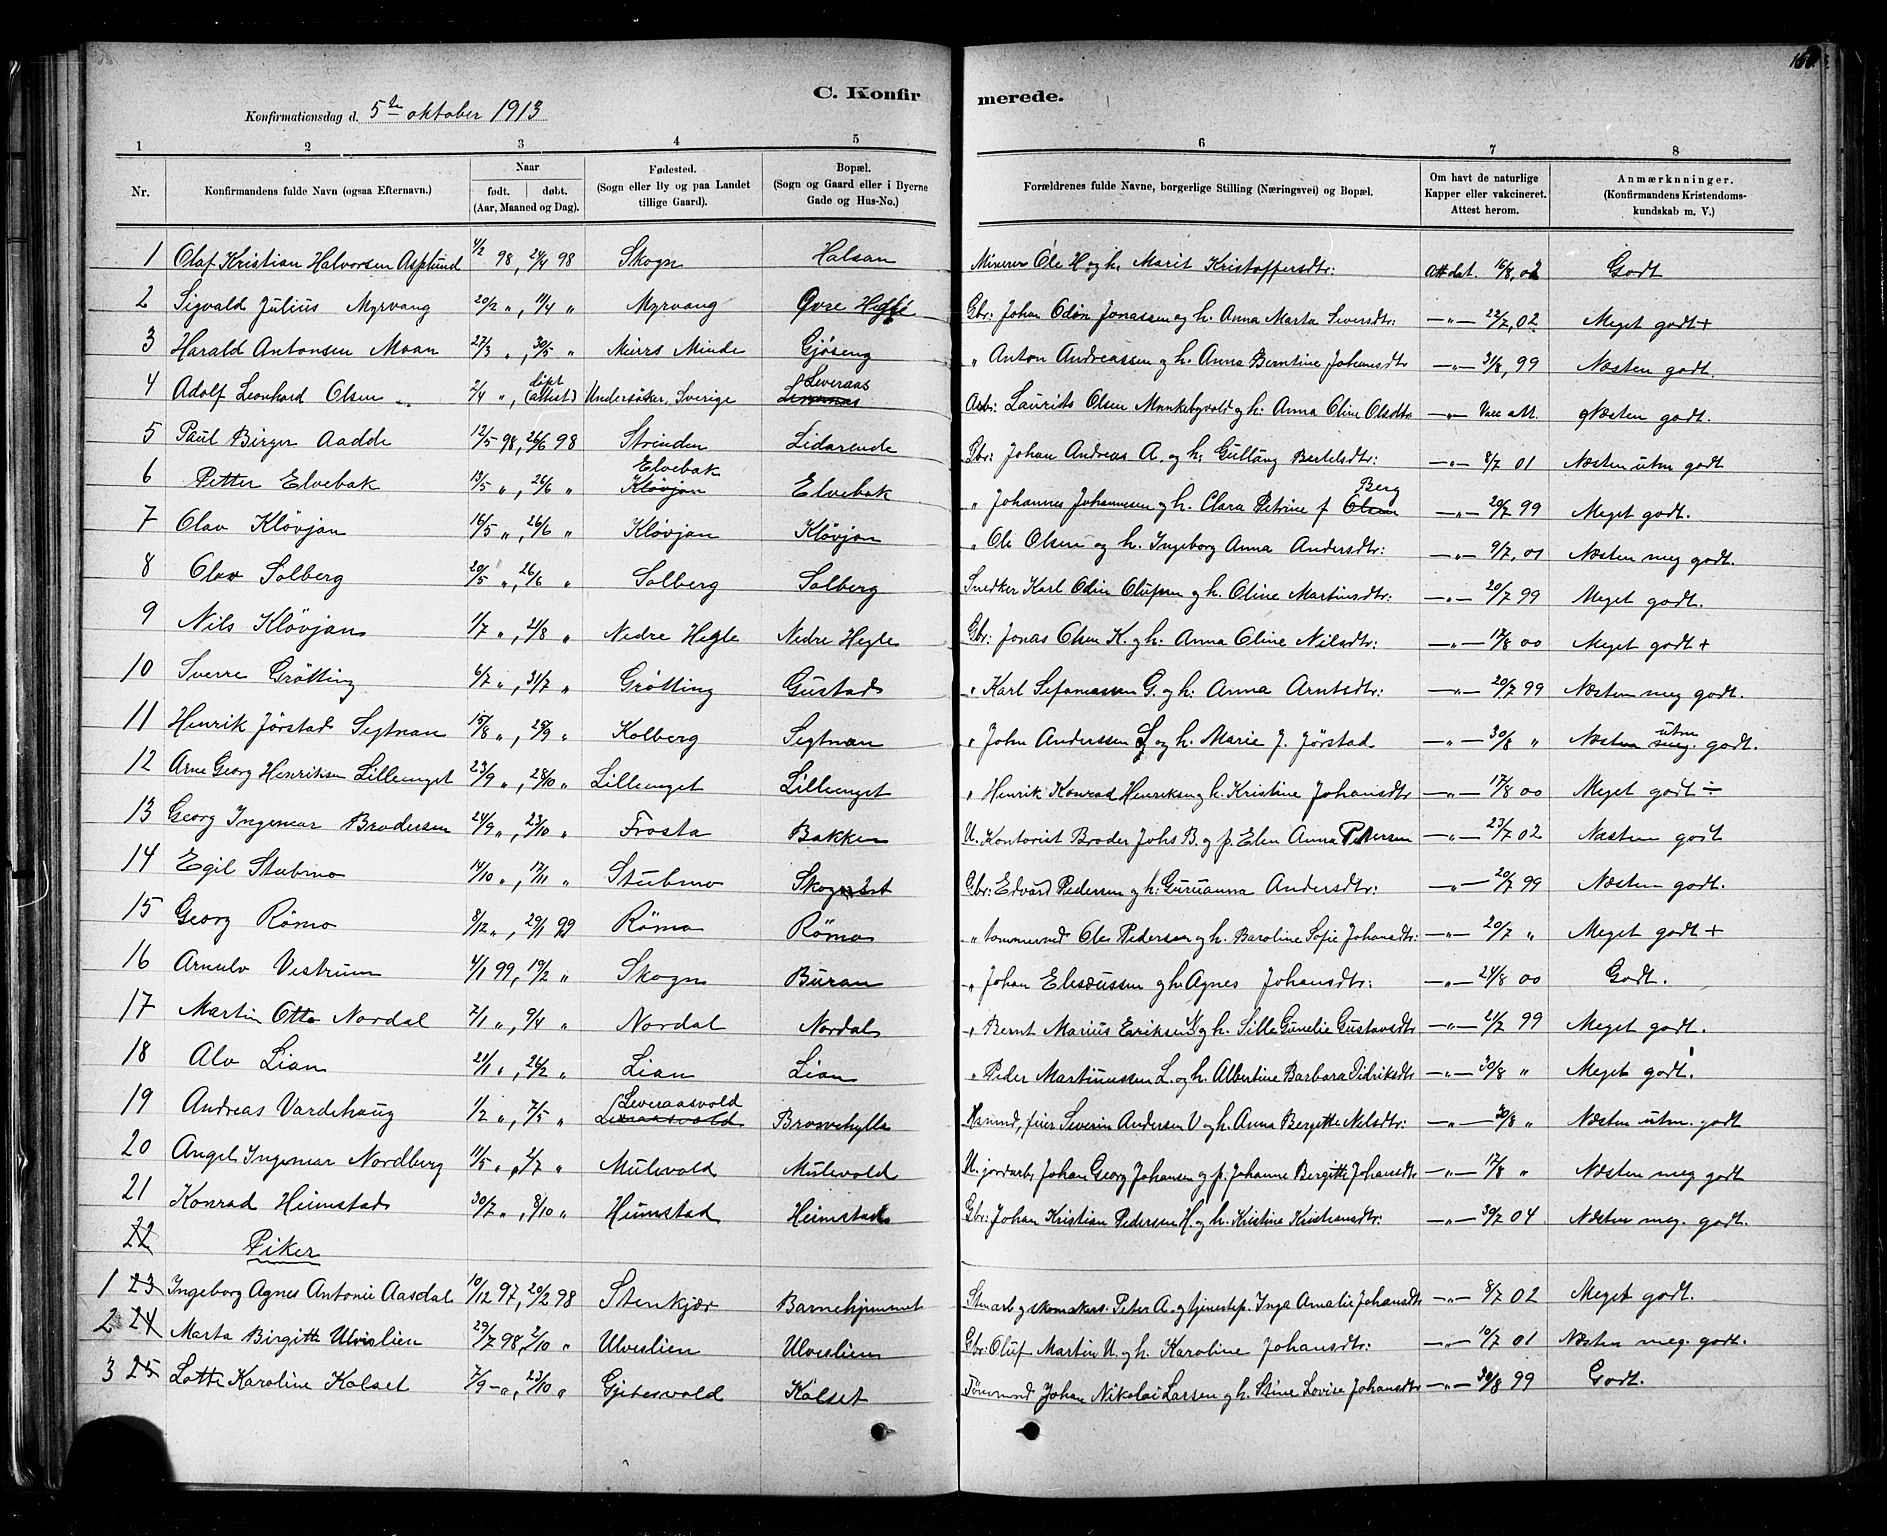 C. Konfirmerede.
Konfirmationsdag d. 5te oktober 1913
1 2 3 4 5 6 7 8
Nr. | Konfirmandens fulde Navn (ogsaa Efternavn.) | Naar født. døbt. (Aar, Maaned og Dag). | Fødested. (Sogn eller By og paa Landet tillige Gaard). | Bopæl. (Sogn og Gaard eller i Byerne Gade og Hus-No.) | Forældrenes fulde Navne, borgerlige Stilling (Næringsvei) og Bopæl. | Om havt de naturlige Kapper eller vakcineret. Attest herom. | Anmærknninger. (Konfirmandens Kristendomskundskab m. V.)
1 Olaf Kristian Halvorsen Asplund 4/2 98, 24/4 98 Skogn Halsan Minerer Ole H. og h. Marit Kristoffersdtr: Att dat. 16/8, 02 Godt
2 Sigvald Julius Myrvang 20/2 „, 11/4 „ Myrvang Øvre Hegle Gbr: Johan Odin Jonassen og h: Anna Marta Siversdtr: —„— 22/7, 02 Meget godt +
3 Harald Antonsen Moan 27/3 „, 30/5 „ Minde Gjøseng „ Anton Andreassen og h. Anna Berntine Johansdtr —„— 31/8, 99 Næsten godt.
4 Adolf Leonhard Olsen 2/4 „, døpt (attest) Undersåker, Sverige Leveraas Laurits Olsen Munkebyvold og h: Anna Oline Olsdtr —„— Vacc att. Næsten godt.
5 Paul Birger Aadde 12/5 98, 26/6 98 Strinden Lidarende Gbr: Johan Andreas A. og h: Gullaug Bertelsdtr: —„— 8/7 01 Næsten utm godt
6 Petter Elvebak 13/5 „, 26/6 „ Elvebak Kløvjan Elvebak „ Johannes Johannesen og h. Clara Petrine f Berg Olsen —„— 20/7 99 Meget godt.
7 Olav Kløvjan 14/5 „, 26/6 „ Kløvjan Kløvjan „ Ole Olsen og h. Ingeborg Anna Andersdtr: —„— 9/7, 01 Næsten meg godt.
8 Olav Solberg 20/5 „, 26/6 „ Solberg Solberg Snedker Karl Odin Olufsen og h. Oline Martinsdtr: —„— 20/7 99 Meget godt.
9 Nils Kløvjan 1/7 „, 21/8 „ Nedre Hegle Nedre Hegle Gbr: Jonas Olsen K. og h: Anna Oline Nilsdtr: —„— 17/8 00 Meget godt +
10 Sverre Grötting 6/7 „, 31/7 „ Grötting Gustad „ Karl Sefaniassen G. og h: Anna Arntsdtr: —„— 20/7 99 Næsten meg godt.
11 Henrik Jørstad Segtnan 15/8 „, 25/9 „ Kolberg Segtnan „ John Anderssen S. og h. Marie J. Jörstad —„— 30/8 „ Næsten utm meg. godt.
12 Arne Georg Henriksen Lilleenget 23/9 „, 23/10 „ Lilleenget Lilleenget „ Henrik Konrad Henriksen og h. Kristine Johansdtr —„— 17/8 00 Meget godt ÷
13 Georg Ingemar Brodersen 24/9 „, 23/10 „ Frosta Bakken U. Kontorist Broder Johs B. og p. Elen Anna Petersen —„— 23/7 02 Næsten godt
14 Egil Stubmo 14/10 „, 17/11 „ Stubmo Skogn Gbr: Edvard Pedersen og h: Guruanna Andersdtr: —„— 20/7 99 Næsten godt.
15 Georg Römo 8/12 „, 29/1 99 Römo Römo „ tømmermd Ole Pedersen og h. Baroline Sofie Johansdtr: —„— 20/7 „ Meget godt +
16 Arnulv Vestrum 4/1 99, 19/2 „ Skogn Buran „ Johan Eliseussen og h. Agnes Johansdtr: —„— 24/8 00 Godt.
17 Martin Otto Nordal 7/1 „, 9/4 „ Nordal Nordal „ Bernt Marius Eriksen N og h. Sille Gunelie Gustavsdtr —„— 21/7 99 Meget godt.
18 Alv Lian 21/1 „, 26/2 „ Lian Lian „ Peder Martinussen L. og h. Albertine Barbara Didriksdtr —„— 30/8 „ Meget godt.
19 Andreas Vardehaug 1/2 „, 7/5 „ Leveraasvold Brovehylla Husmd, feier Severin Andersen V og h. Anna Bergitte Nilsdtr: —„— 30/8 „ Næsten utm. godt
20 Angel Ingemar Nordberg 11/5 „, 2/7 „ Mulevold Mulevold U. jordarb Johan Georg Johansen og p. Johanne Bergitte Johansdtr —„— 17/8 „ Næsten meg godt
21 Konrad Heimstad 30/7 „, 8/10 „ Heimstad Heimstad Gbr: Johan Kristian Pedersen H. og h. Kristine Kristiansdtr: —„— 30/7 04 Næsten meg. godt.
22 Piker
1 23 Ingeborg Agnes Antonie Aasdal 10/12 97, 20/2 98 Stenkjær Barnehjemmet Stenarb og skomakers. Peter A. og tjenestep. Inga Amalie Johansdtr —„— 8/7 02 Meget godt.
2 24 Marta Birgitte Ulveslien 29/7 98, 2/10 „ Ulveslien Ulveslien Gbr: Oluf Martin U. og h. Karoline Johansdtr: —„— 10/7 01 Næsten meg. godt.
3 25 Lotte Karoline Kolset 7/9 – „, 23/10 „ Gjetesvold Kolset Johan Nikolai Larsen og h. Stine Lovise Johansdtr —„— 30/8 99 Godt.